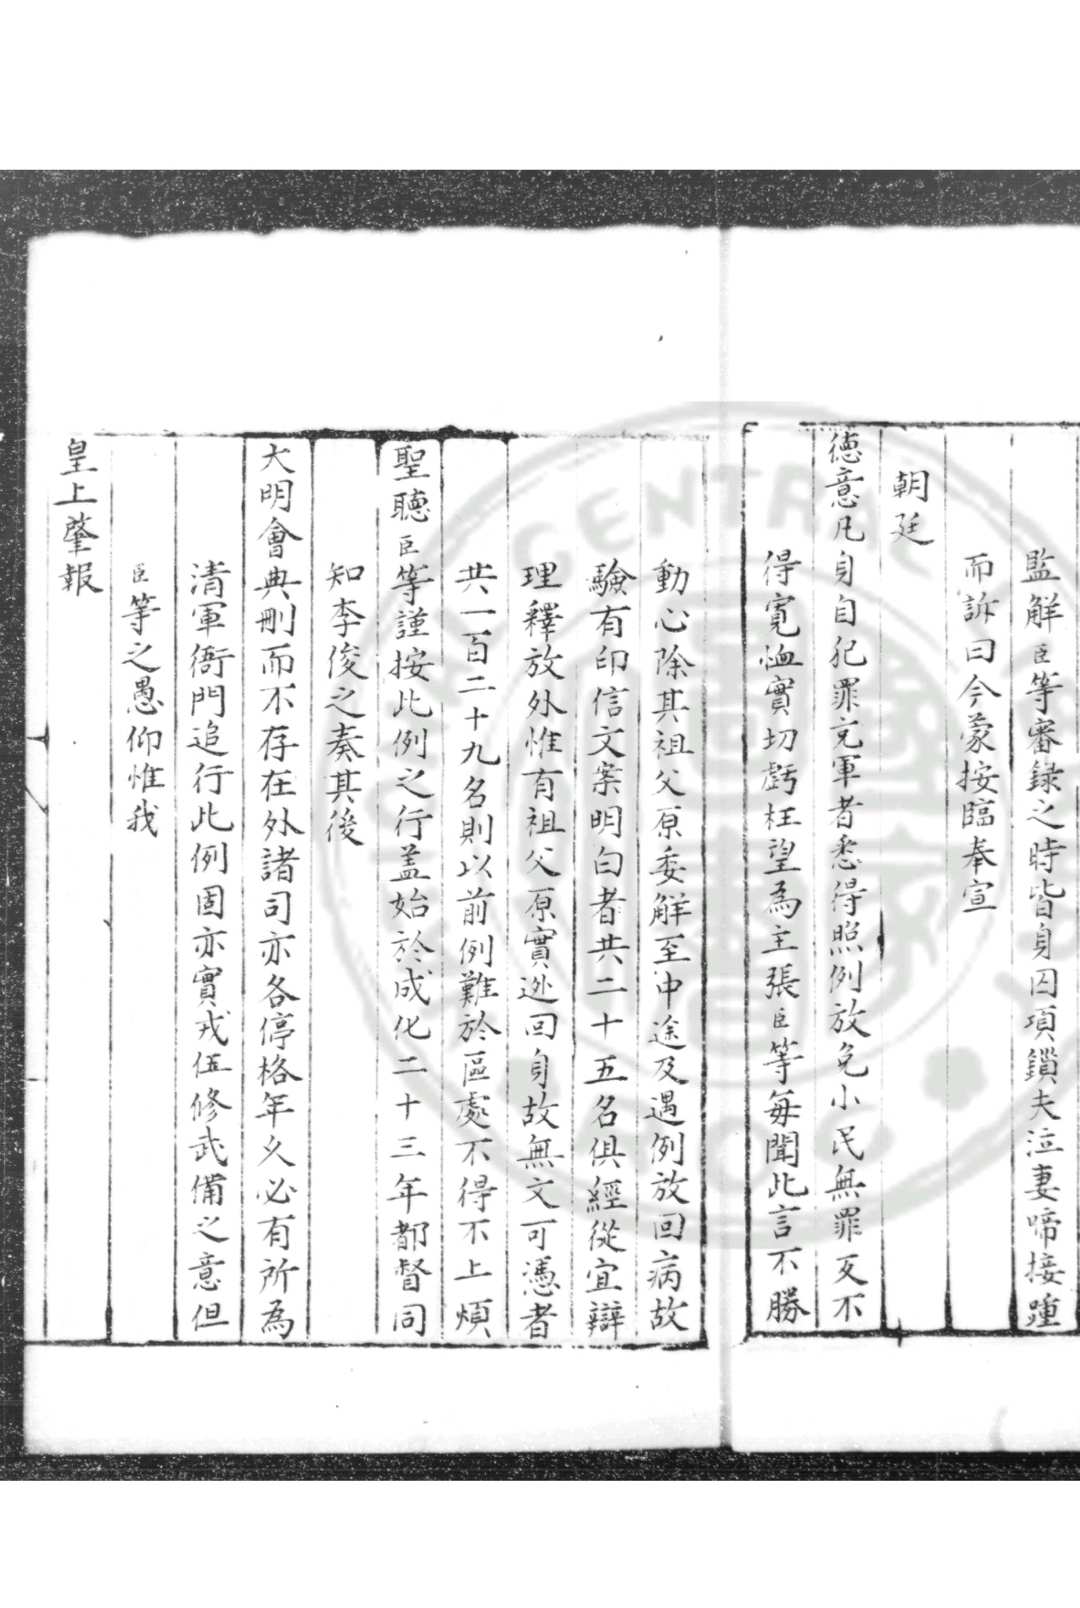 監解臣等審録之時皆身囚項鎖夫泣妻啼接踵
而訴曰今蒙按臨奉宣
朝廷
德意凡自自犯罪充軍者悉得照例放免小民無罪反不
得寛恤實切虧枉望為主張臣等每聞此言不勝
動心除其祖父原委解至中途及遇例放回病故
驗有印信文案明白者共二十五名俱經從宜辯
理釋放外惟有祖父原實逃回身故無文可憑者
共一百二十九名則以前例難於區處不得不上煩
聖聽臣等謹按此例之行盖始於成化二十三年都督同
知李俊之奏其後
大明會典刪而不存在外諸司亦各停格年久必有所為
清軍衙門追行此例固亦實戎伍修武備之意但
臣等之愚仰惟我
皇上肇報